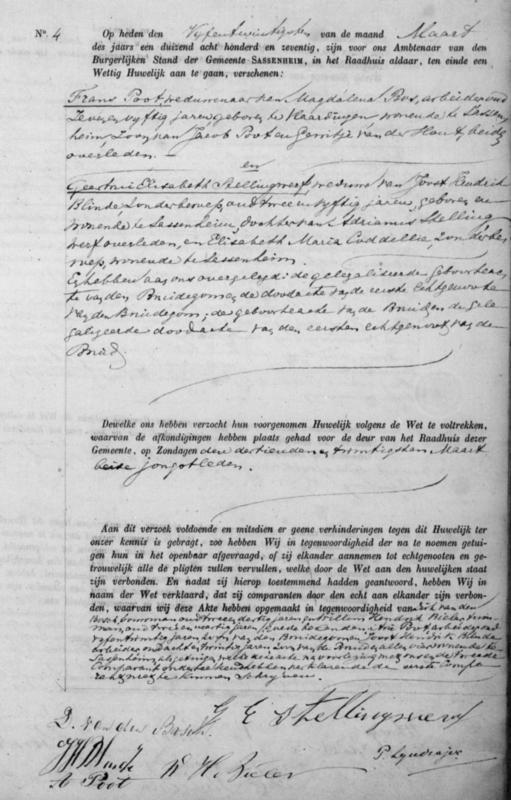 No. 4
Op heden den Vyfentwintigsten van de maand Maart
des jaars een duizend acht honderd en zeventig, zijn voor ons Ambtenaar van den
Burgerlijken Stand der Gemeente SASSENHEIM, in het Raadhuis aldaar, ten einde een
Wettig Huwelijk aan te gaan, verschenen:
Frans Poot, weduwenaar van Magdalena Bos, arbeider oud
zeven en vyftig jaren geboren te Vlaardingen wonende te Sassen
heim, Zoon van Jacob Poot en Gerritje van der Hout, beide
overleden. —
en
Geertrui Elisabeth Stellingwerf, weduwe van Joost Hendrik
Blinde, zonder beroep, oud twee en vyftig jaren, geboren en
wonende te Sassenheim, dochter van Adrianus Stelling
werf overleden, en Elisabeth Maria zonder be
roep, wonende te Sassenheim.
Zy hebben aan ons overgelegd: de gelegaliseerde geboorteac
te van den Bruidegom, de doodacte van de eerste echtgenoote
van den Bruidegom; de geboorteacte van de Bruid en de gele
galiseerde doodacte van den eersten echtgenoot van de
Bruid.
Dewelke ons hebben verzocht hun voorgenomen Huwelijk volgens de Wet te voltrekken,
waarvan de afkondigingen hebben plaats gehad voor de deur van het Raadhuis dezer
Gemeente, op Zondagen den dertienden en twintigsten Maart
beide jongstleden.
Aan dit verzoek voldoende en mitsdien er geene verhinderingen tegen dit Huwelijk ter
onzer kennis is gebragt, zoo hebben Wij in tegenwoordigheid der na te noemen getui-
gen hun in het openbaar afgevraagd, of zij elkander aannemen tot echtgenooten en ge-
trouwelijk alle de pligten zullen vervullen, welke door de Wet aan den huwelijken staat
zijn verbonden. En nadat zij hierop toestemmend hadden geantwoord, hebben Wij in
naam der Wet verklaard, dat zij comparanten door den echt aan elkander zijn verbon-
den, waarvan wij deze Akte hebben opgemaakt in tegenwoordigheid van Dirk van den
Bosch, bouwman oud twee en dertig jaren, Willem Hendrik
man, oud drie en veertig jaren, Poot arbeider oud
vyf en twintig jaren Zoon van den Bruidegom en Joost Hendrik Blinde
arbeider oud acht en twintig jaren Zoon van de Bruid, allen wonende te
Sassenheim, als getuigen, welke deze acte na voorlezing met ons en de tweede
Comparant onderteekend hebben, verklarende de eerste Compa
rant niet te kunnen schryven.
G E Stellingwerf
D. van den Bosch
A Poot